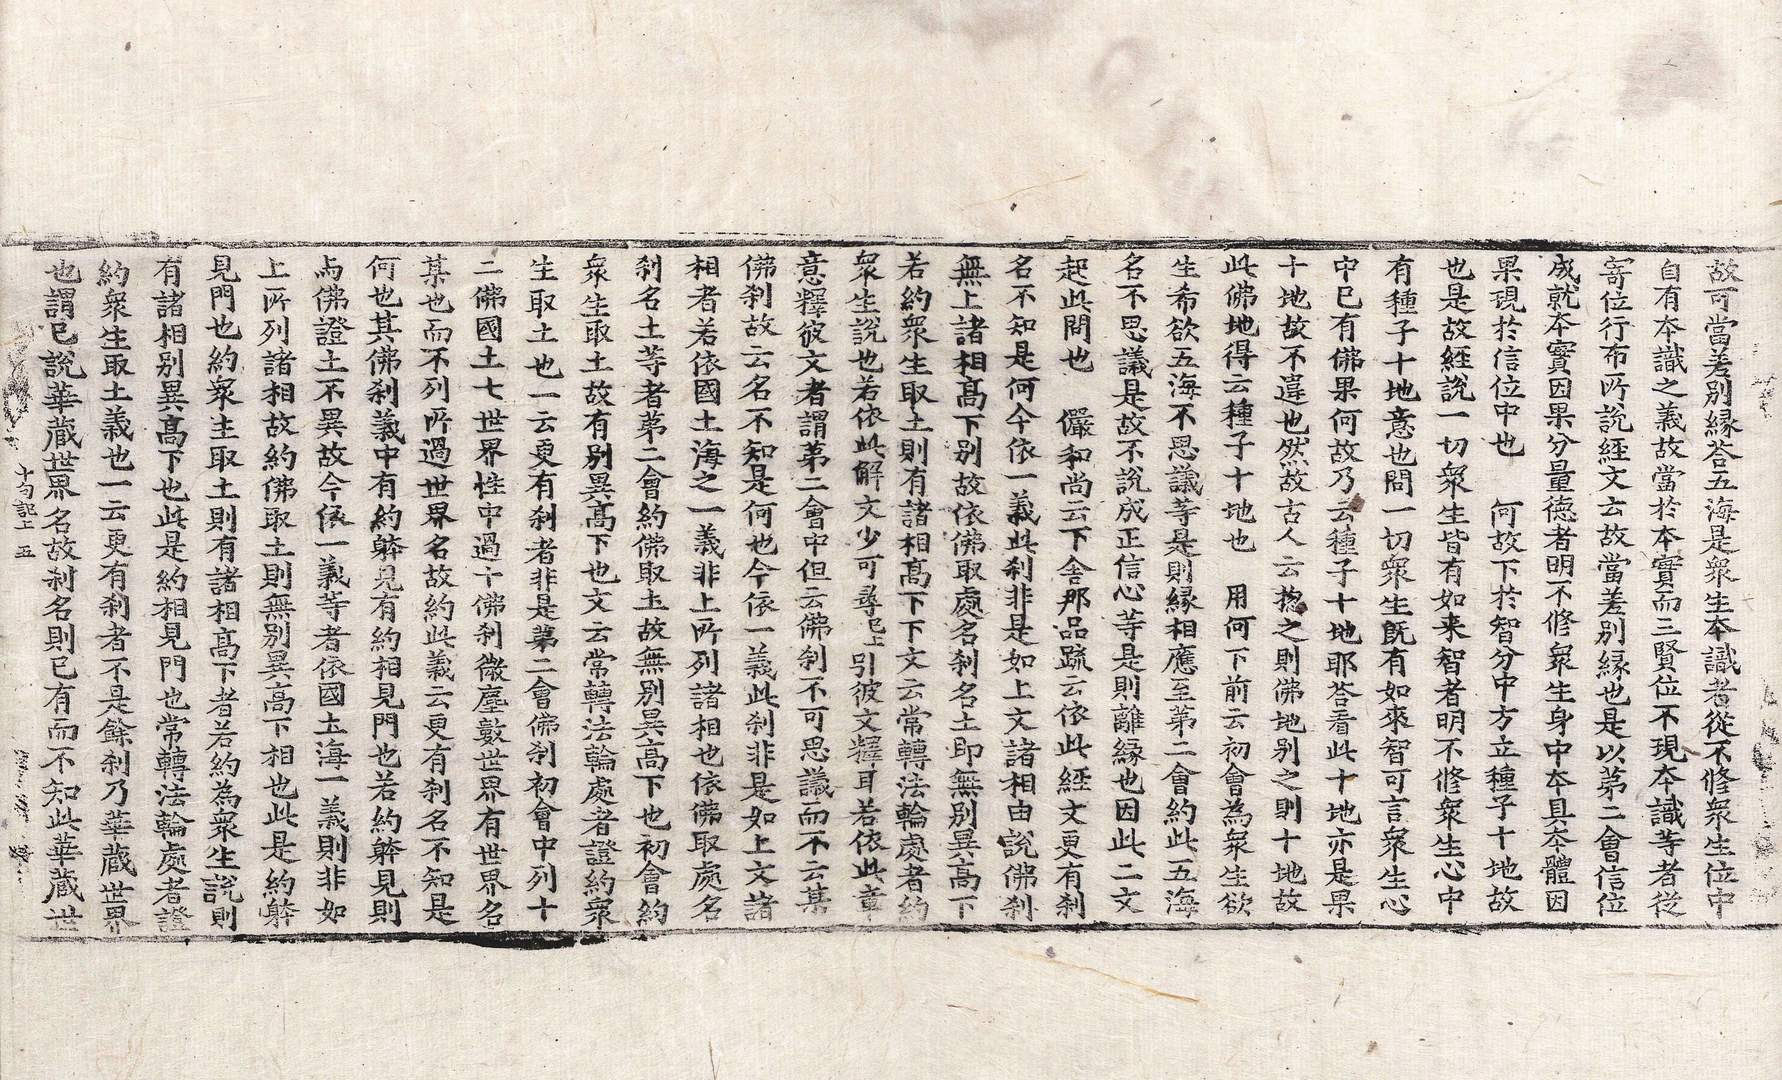 故可當差別縁答五海是衆生本識者從不修衆生位中
自有本識之義故當於本實而三賢位不現本識等者從
寄位行布所說經文云故當差別縁也是以第二會信位
成就本實因果分量德者明不修衆生身中本具本體因
果現於信位中也　何故下於智分中方立種子十地故
也是故經說一切衆生皆有如来智者明不修衆生心中
有種子十地意也問一切衆生旣有如來智可言衆生心
中已有佛果何故乃云種子十地耶答看此十地亦是果
十地故不違也然故古人云揔之則佛地別之則十地故
此佛地得云種子十地也　用何下前云初會為衆生欲
生希欲五海不思議等是則縁相應至第二會約此五海
名不思議是故不說成正信心等是則離縁也因此二文
起此問也　儼和尚云下舍那品疏云依此經文更有刹
名不知是何今依一義此刹非是如上文諸相由說佛刹
無上諸相高下別故依佛取處名刹名土即無別異高下
若約衆生取土則有諸相高下下文云常轉法輪處者約
衆生說也若依此解文少可尋已上引彼文釋耳若依此章
意釋彼文者謂第二會中但云佛刹不可思議而不云某
佛刹故云名不知是何也今依一義此刹非是如上文諸
相者若依國土海之一義非上所列諸相也依佛取處名
刹名土等者第二會約佛取土故無別異高下也初會約
衆生取土故有別異高下也文云常轉法輪處者證約衆
生取土也一云更有刹者非是第二會佛刹初會中列十
二佛國土七世界性中過十佛刹微塵數世界有世界名
某也而不列所過世界名故約此義云更有刹名不知是
何也其佛刹義中有約躰見有約相見門也若約躰見則
与佛證土不異故今依一義等者依國土海一義則非如
上所列諸相故約佛取土則無別異高下相也此是約躰
見門也約衆生取土則有諸相高下者若約為衆生說則
有諸相別異高下也此是約相見門也常轉法輪處者證
約衆生取土義也一云更有刹者不是餘刹乃華藏世界
也謂已說華藏世界名故刹名則已有而不知此華藏世
十句記上　五